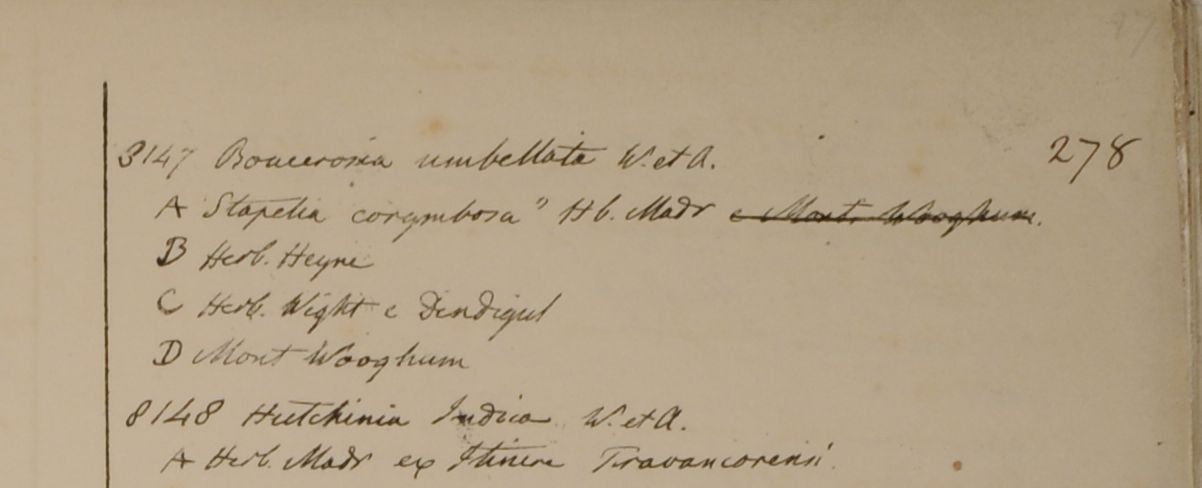 8147 Boucerosia umbellata W. et A. 278
A "Stapelia corymbosa" Hb. Madr e Mont. Wooghum.
B Herb. Heyne
C Herb. Wight e Dindigul
D Mont Wooghum
8148 Hutchinia Indica W. et A.
A Herb. Madr ex Itinere Travancorensi.